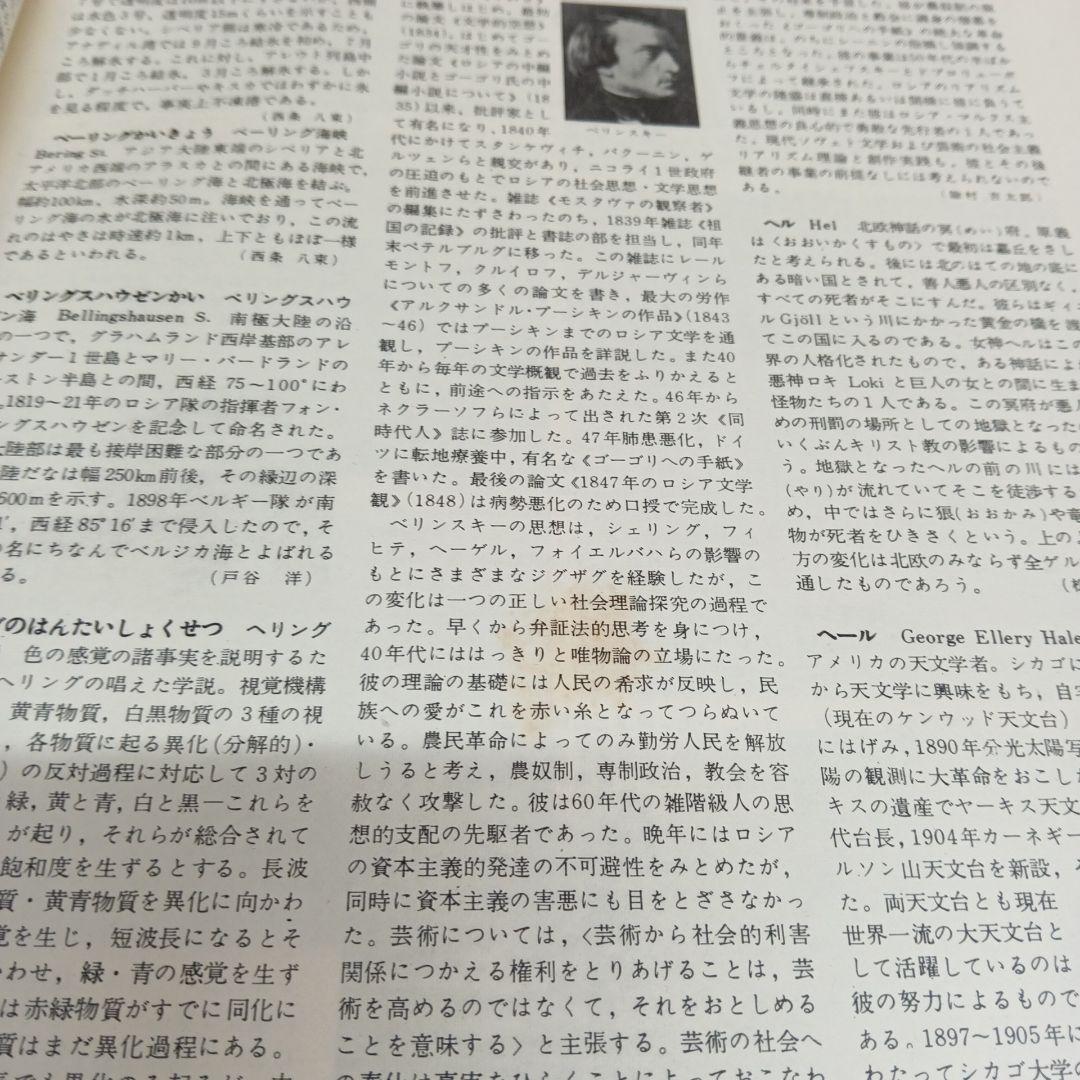 は水色3号，透明度15mくらいを示すことも
少なくない。シベリア側は寒冷であるため，
アナディル湾では9月ころ結氷を初め，7月
ころ解氷する。これに対し，アレウト列島中
部で1月ころ結氷，3月ころ解氷する。しか
し，ダッチハーバーやキスカではわずかに氷
を見る程度で，事実上不凍港である。
（西条 八束）
ベーリングかいきょう ベーリング海峡
Bering St. アジア大陸東端のシベリアと北
アメリカ西端のアラスカとの間にある海峡で，
太平洋北部のベーリング海と北極海を結ぶ。
幅約100km，水深約50m。海峡を通ってベー
リング海の水が北極海に注いでおり，この流
れのはやさは時速約1km，上下ともほぼ一様
であるといわれる。 （西条 八束）
ベリングスハウゼンかい ベリングスハウ
ン海 Bellingshausen S. 南極大陸の沿
の一つで，グラハムランド西岸基部のアレ
サンダー1世島とマリー・バードランドの
ーストン半島との間，西経 75～100°にわ
。1819～21年のロシア隊の指揮者フォン・
ングスハウゼンを記念して命名された。
大陸部は最も接岸困難な部分の一つであ
陸だなは幅250km前後，その縁辺の深
600mを示す。1898年ベルギー隊が南
′，西経85°16′まで侵入したので，そ
の名にちなんでベルジカ海とよばれる
る。 （戸谷 洋）
グのはんたいしょくせつ ヘリング
色の感覚の諸事実を説明するた
ヘリングの唱えた学説。視覚機構
黄青物質，白黒物質の3種の視
，各物質に起る異化（分解的）・
）の反対過程に対応して3対の
緑，黄と青，白と黒―これらを
が起り，それらが総合されて
飽和度を生ずるとする。長波
質・黄青物質を異化に向かわ
覚を生じ，短波長になるとそ
かわせ，緑・青の感覚を生ず
は赤緑物質がすでに同化に
質はまだ異化過程にある。
に執筆しはじめ，最初
の論文《文学的空想》
(1834)，はじめてゴー
ゴリの天才性をみとめ
た論文《ロシアの中編
小説とゴーゴリ氏の中
編小説について》(18
35)以来，批評家とし
て有名になり，1840年
代にかけてスタンケヴィチ，バクーニン，ゲ
ルツェンらと親交があり，ニコライ1世政府
の圧迫のもとでロシアの社会思想・文学思想
を前進させた。雑誌《モスクヴァの観察者》
の編集にたずさわったのち，1839年雑誌《祖
国の記録》の批評と書誌の部を担当し，同年
末ペテルブルグに移った。この雑誌にレール
モントフ，クルイロフ，デルジャーヴィンら
についての多くの論文を書き，最大の労作
《アルクサンドル・プーシキンの作品》(1843
～46) ではプーシキンまでのロシア文学を通
観し，プーシキンの作品を詳説した。また40
年から毎年の文学概観で過去をふりかえると
ともに，前途への指示をあたえた。46年から
ネクラーソフらによって出された第2次《同
時代人》誌に参加した。47年肺患悪化，ドイ
ツに転地療養中，有名な《ゴーゴリへの手紙》
を書いた。最後の論文《1847年のロシア文学
観》(1848) は病勢悪化のため口授で完成した。
ベリンスキーの思想は，シェリング，フィ
ヒテ，ヘーゲル，フォイエルバハらの影響の
もとにさまざまなジグザグを経験したが，こ
の変化は一つの正しい社会理論探究の過程で
あった。早くから弁証法的思考を身につけ，
40年代にははっきりと唯物論の立場にたった。
彼の理論の基礎には人民の希求が反映し，民
族への愛がこれを赤い糸となってつらぬいて
いる。農民革命によってのみ勤労人民を解放
しうると考え，農奴制，専制政治，教会を容
赦なく攻撃した。彼は60年代の雑階級人の思
想的支配の先駆者であった。晩年にはロシア
の資本主義的発達の不可避性をみとめたが，
同時に資本主義の害悪にも目をとざさなかっ
た。芸術については，〈芸術から社会的利害
関係につかえる権利をとりあげることは，芸
術を高めるのではなくて，それをおとしめる
ことを意味する〉と主張する。芸術の社会へ
の奉仕は真実をひらくことによっておこなわ
ベリンスキー
フによって継承された。ロシアのリアリズム
文学の隆盛は直接あるいは間接に彼に負うて
いるし，同時にまた彼はロシア・マルクス主
義思想の良心的で勇敢な先行者の1人であっ
た。現代ソヴェト文学および芸術の社会主義
リアリズム理論と創作実践も，彼とその後
継者の事業の前提なしには考えられないので
ある。
ヘル Hel 北欧神話の冥（めい）府。原義
は〈おおいかくすもの〉で最初は墓丘をさし
たと考えられる。後には北のはての地の底に
ある暗い国とされて，善人悪人の区別なく，
すべての死者がそこにすんだ。彼らはギョ
ル Gjöll という川にかかった黄金の橋を渡
てこの国に入るのである。女神ヘルはこの
界の人格化されたもので，ある神話によ
悪神ロキ Loki と巨人の女との間に生ま
怪物たちの1人である。この冥府が悪人
めの刑罰の場所としての地獄となったの
いくぶんキリスト教の影響によるもの
う。地獄となったヘルの前の川には
（やり）が流れていてそこを徒渉する
め，中ではさらに狼（おおかみ）や竜
物が死者をひきさくという。上の
方の変化は北欧のみならず全ゲル
通したものであろう。
ヘール George Ellery Hale
アメリカの天文学者。シカゴに
から天文学に興味をもち，自宅
（現在のケンウッド天文台）
にはげみ，1890年分光太陽写
陽の観測に大革命をおこした
キスの遺産でヤーキス天文
代台長，1904年カーネギー
ルソン山天文台を新設，
た。両天文台とも現在
世界一流の大天文台と
して活躍しているのは
彼の努力によるもので
ある。1897～1905年に
わたってシカゴ大学の